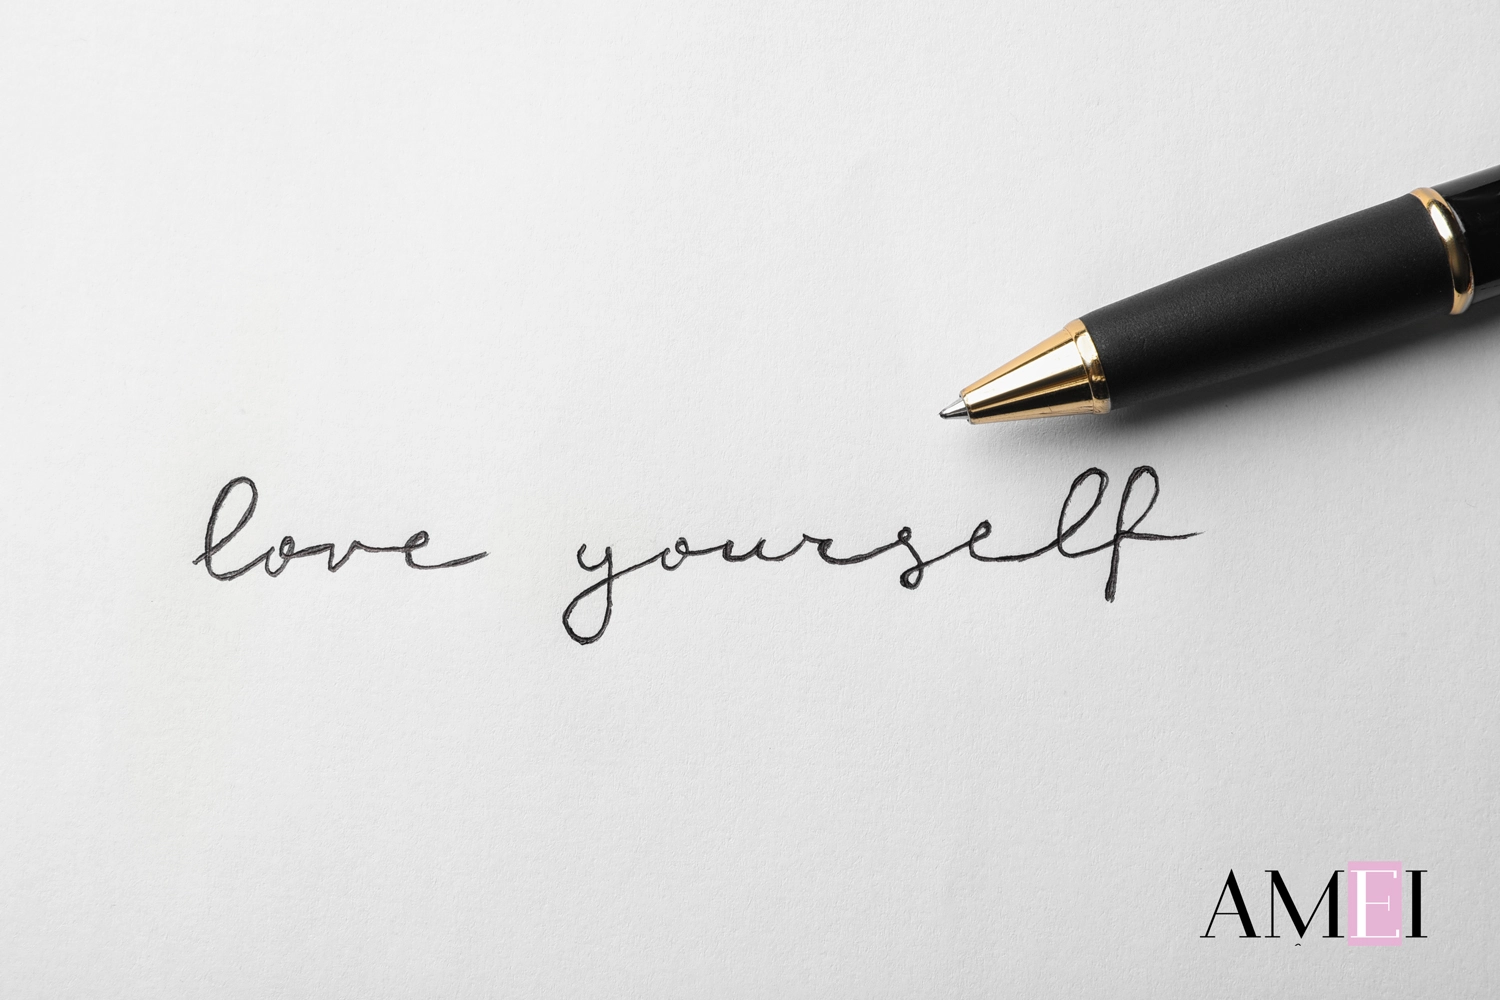 love yourself
AMEI